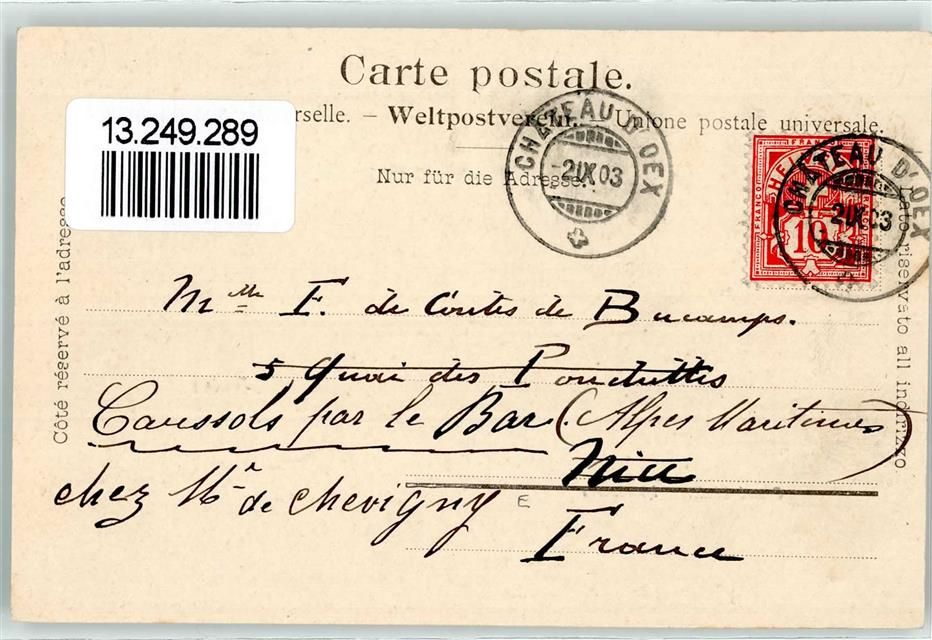 Carte postale.
13.249.289
rselle. – Weltpostverein. – Unione postale universale.
Nur für die Adresse.
CHATEAU D'OEX
-2IX03
FRANCO
HELVETIA
10
CHATEAU D'OEX
-2IX03
Côté réservé à l'adresse
Lato riservato all indirizzo
Mlle F. de Contes de Bucamps.
5 Quai des Ponchettes
Caussols par le Bar (Alpes Maritimes)
Nice
chez Mr de Chevigny
E
France